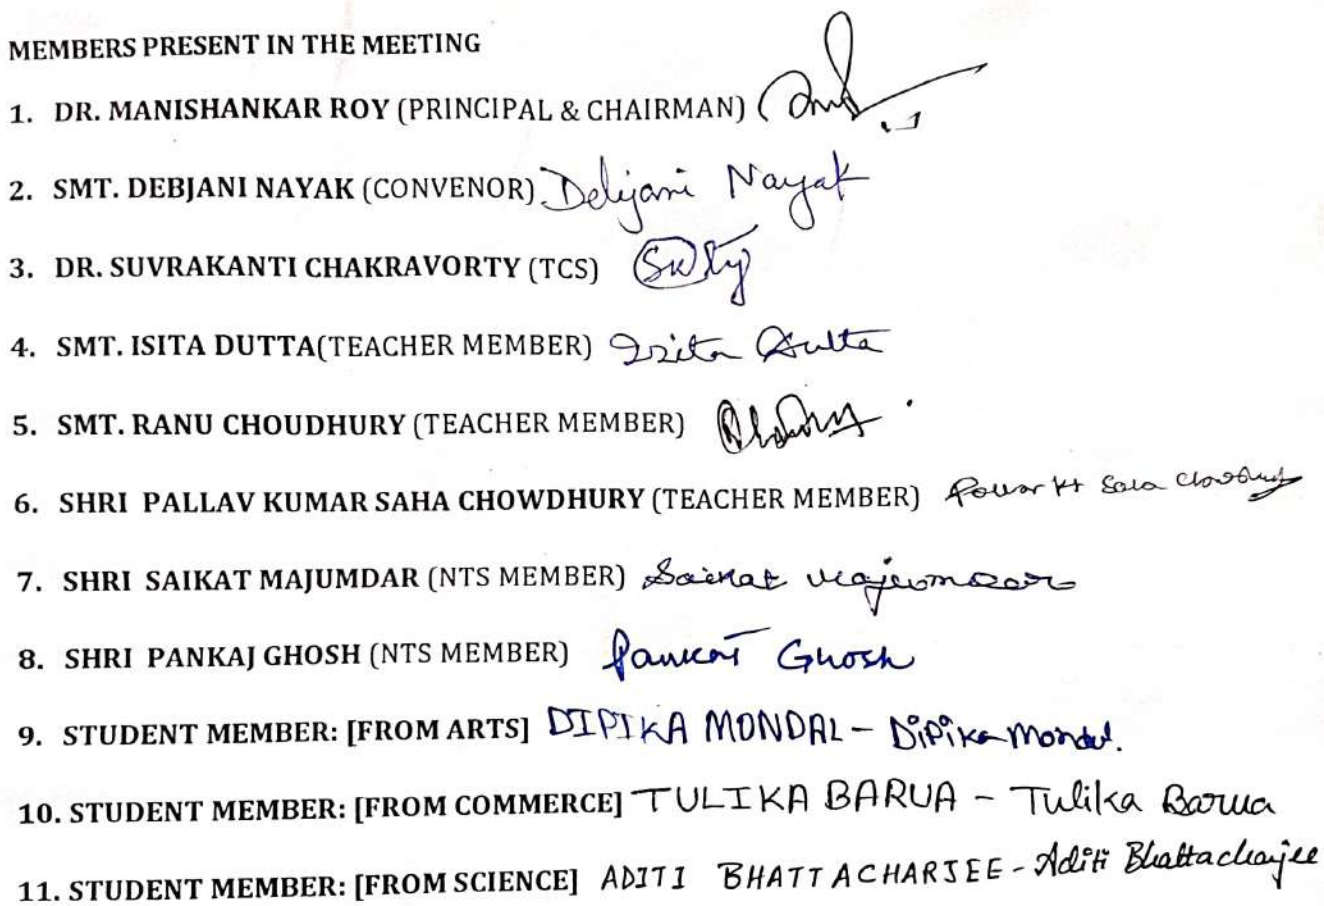 MEMBERS PRESENT IN THE MEETING
1. DR. MANISHANKAR ROY (PRINCIPAL & CHAIRMAN)
2. SMT. DEBJANI NAYAK (CONVENOR) Debjani Nayak
3. DR. SUVRAKANTI CHAKRAVORTY (TCS)
4. SMT. ISITA DUTTA(TEACHER MEMBER) Isita Dutta
5. SMT. RANU CHOUDHURY (TEACHER MEMBER)
6. SHRI PALLAV KUMAR SAHA CHOWDHURY (TEACHER MEMBER)
7. SHRI SAIKAT MAJUMDAR (NTS MEMBER) Saikat Majumdar
8. SHRI PANKAJ GHOSH (NTS MEMBER) Pankaj Ghosh
9. STUDENT MEMBER: [FROM ARTS] DIPIKA MONDAL - Dipika Mondal.
10. STUDENT MEMBER: [FROM COMMERCE] TULIKA BARUA - Tulika Barua
11. STUDENT MEMBER: [FROM SCIENCE] ADITI BHATTACHARJEE - Aditi Bhattacharjee